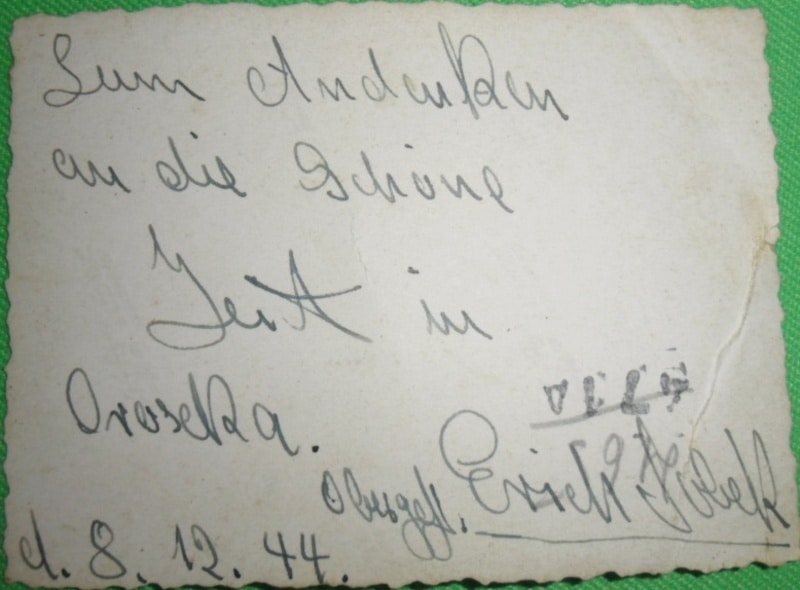 Zum Andenken
an die Schöne
Zeit in
Oroszka.
Obergefr. Erich
d. 8. 12. 44.